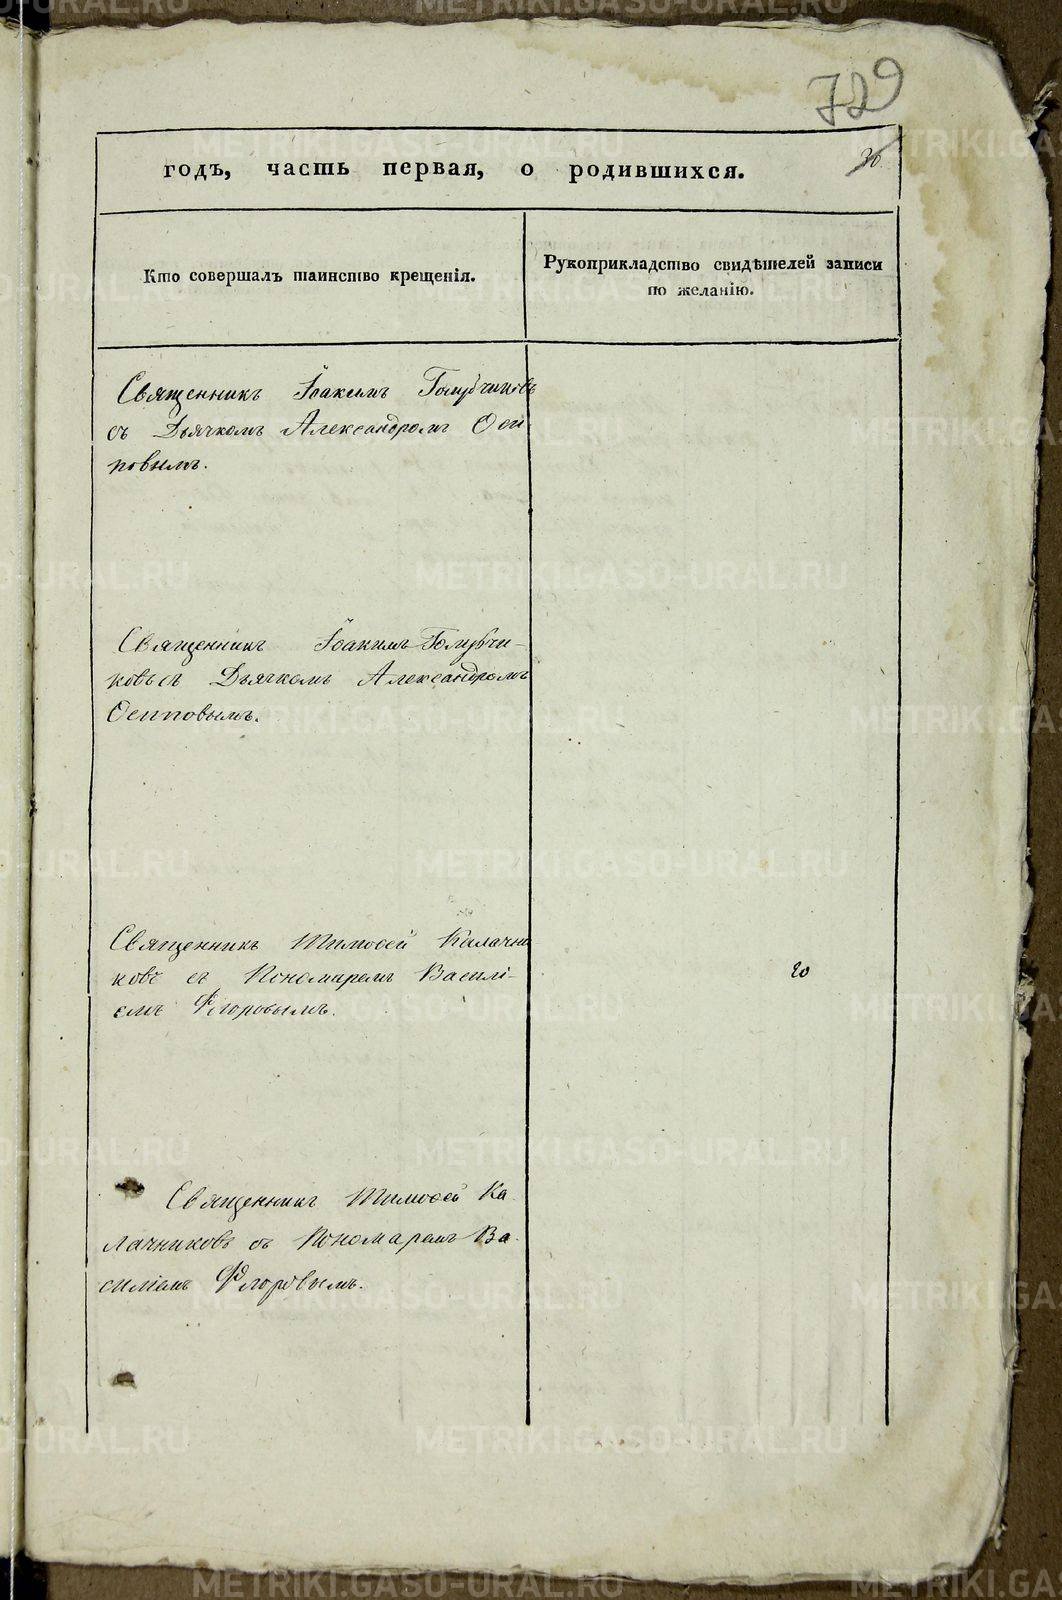 729
годъ, часть первая, о родившихся.
30
Кто совершалъ таинство крещенія.
Рукоприкладство свидѣтелей записи
по желанію.
Священникъ Іоакимъ Голубчиковъ
съ Дьячкомъ Александромъ Оси
повымъ.
Священникъ Іоакимъ Голубчи-
ковъ съ Дьячкомъ Александромъ
Осиповымъ.
Священникъ Тимоѳей Калачни
ковъ съ Пономаремъ Василі-
емъ Флоровымъ.
20
Священникъ Тимоѳей Ка
лачниковъ съ Пономаремъ Ва
силіемъ Флоровымъ.
METRIKI.GASO-URAL.RU